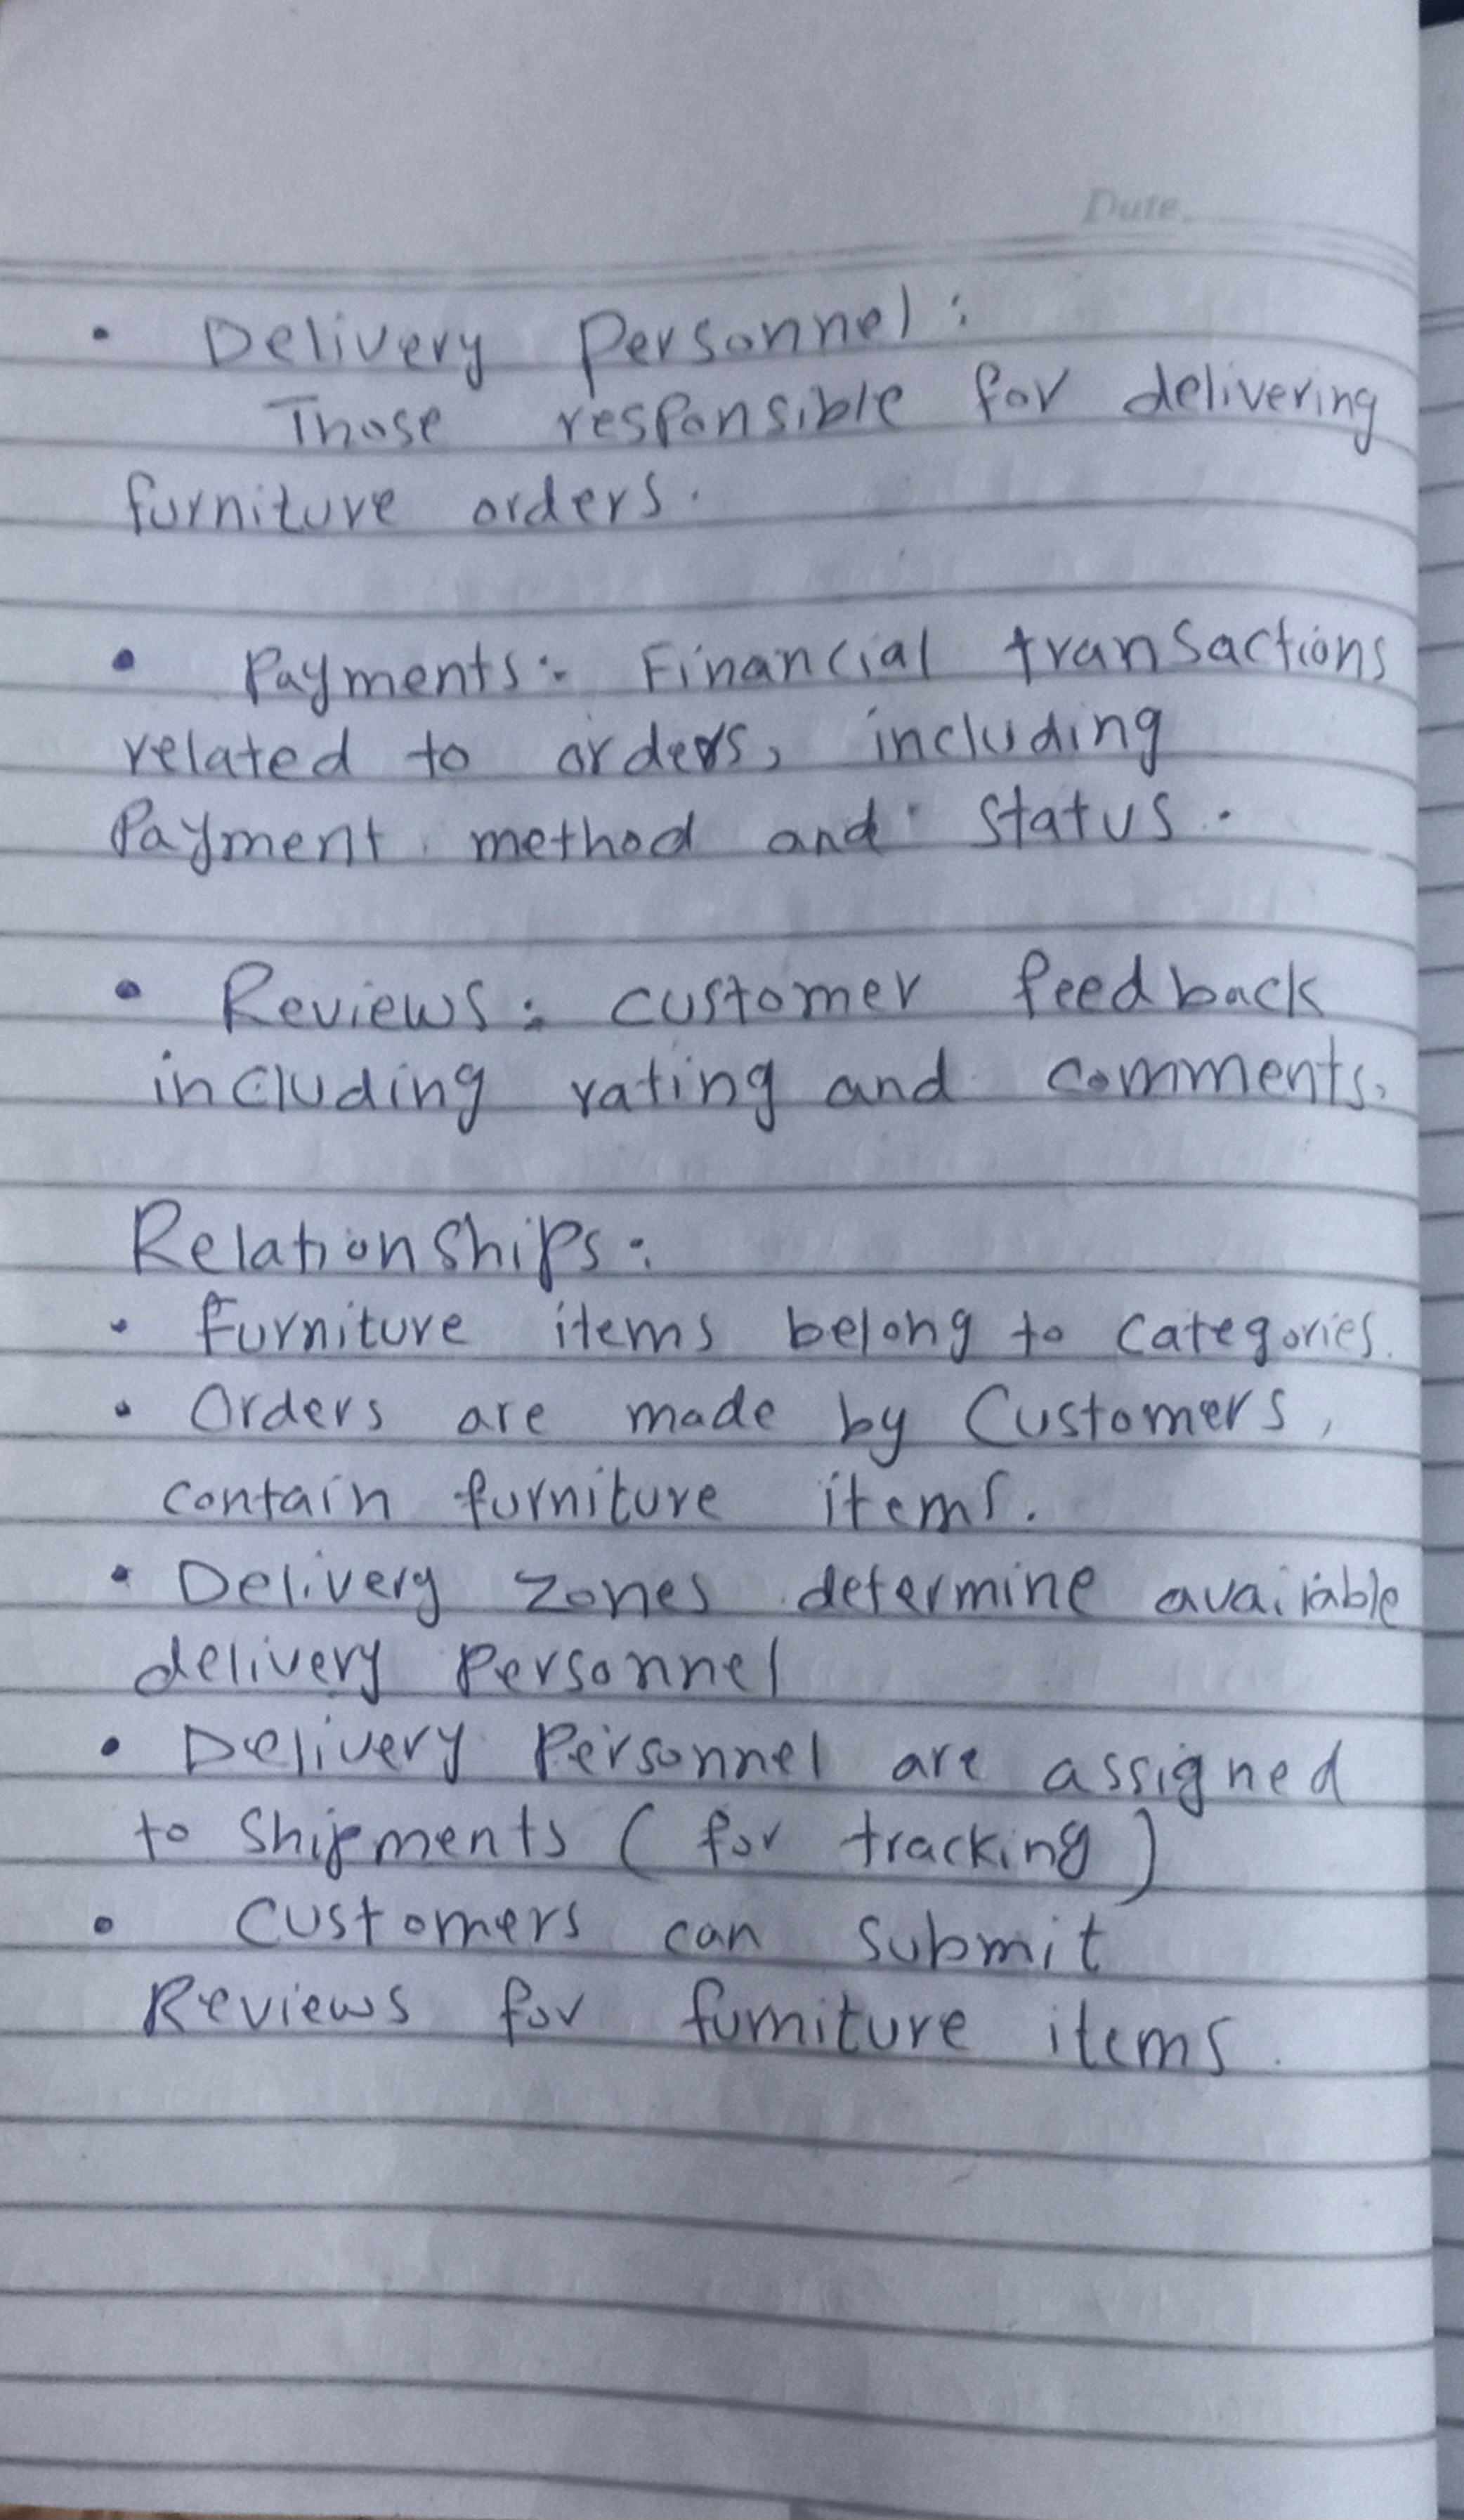 Date
• Delivery Personnel :
Those responsible for delivering
furniture orders.
• Payments :- Financial transactions
related to orders, including
Payment method and status.
• Reviews : customer feedback
including rating and comments.
Relationships :
• furniture items belong to categories.
• Orders are made by Customers,
contain furniture items.
• Delivery zones determine available
delivery Personnel
• Delivery Personnel are assigned
to Shipments ( for tracking )
• Customers can submit
Reviews for furniture items.